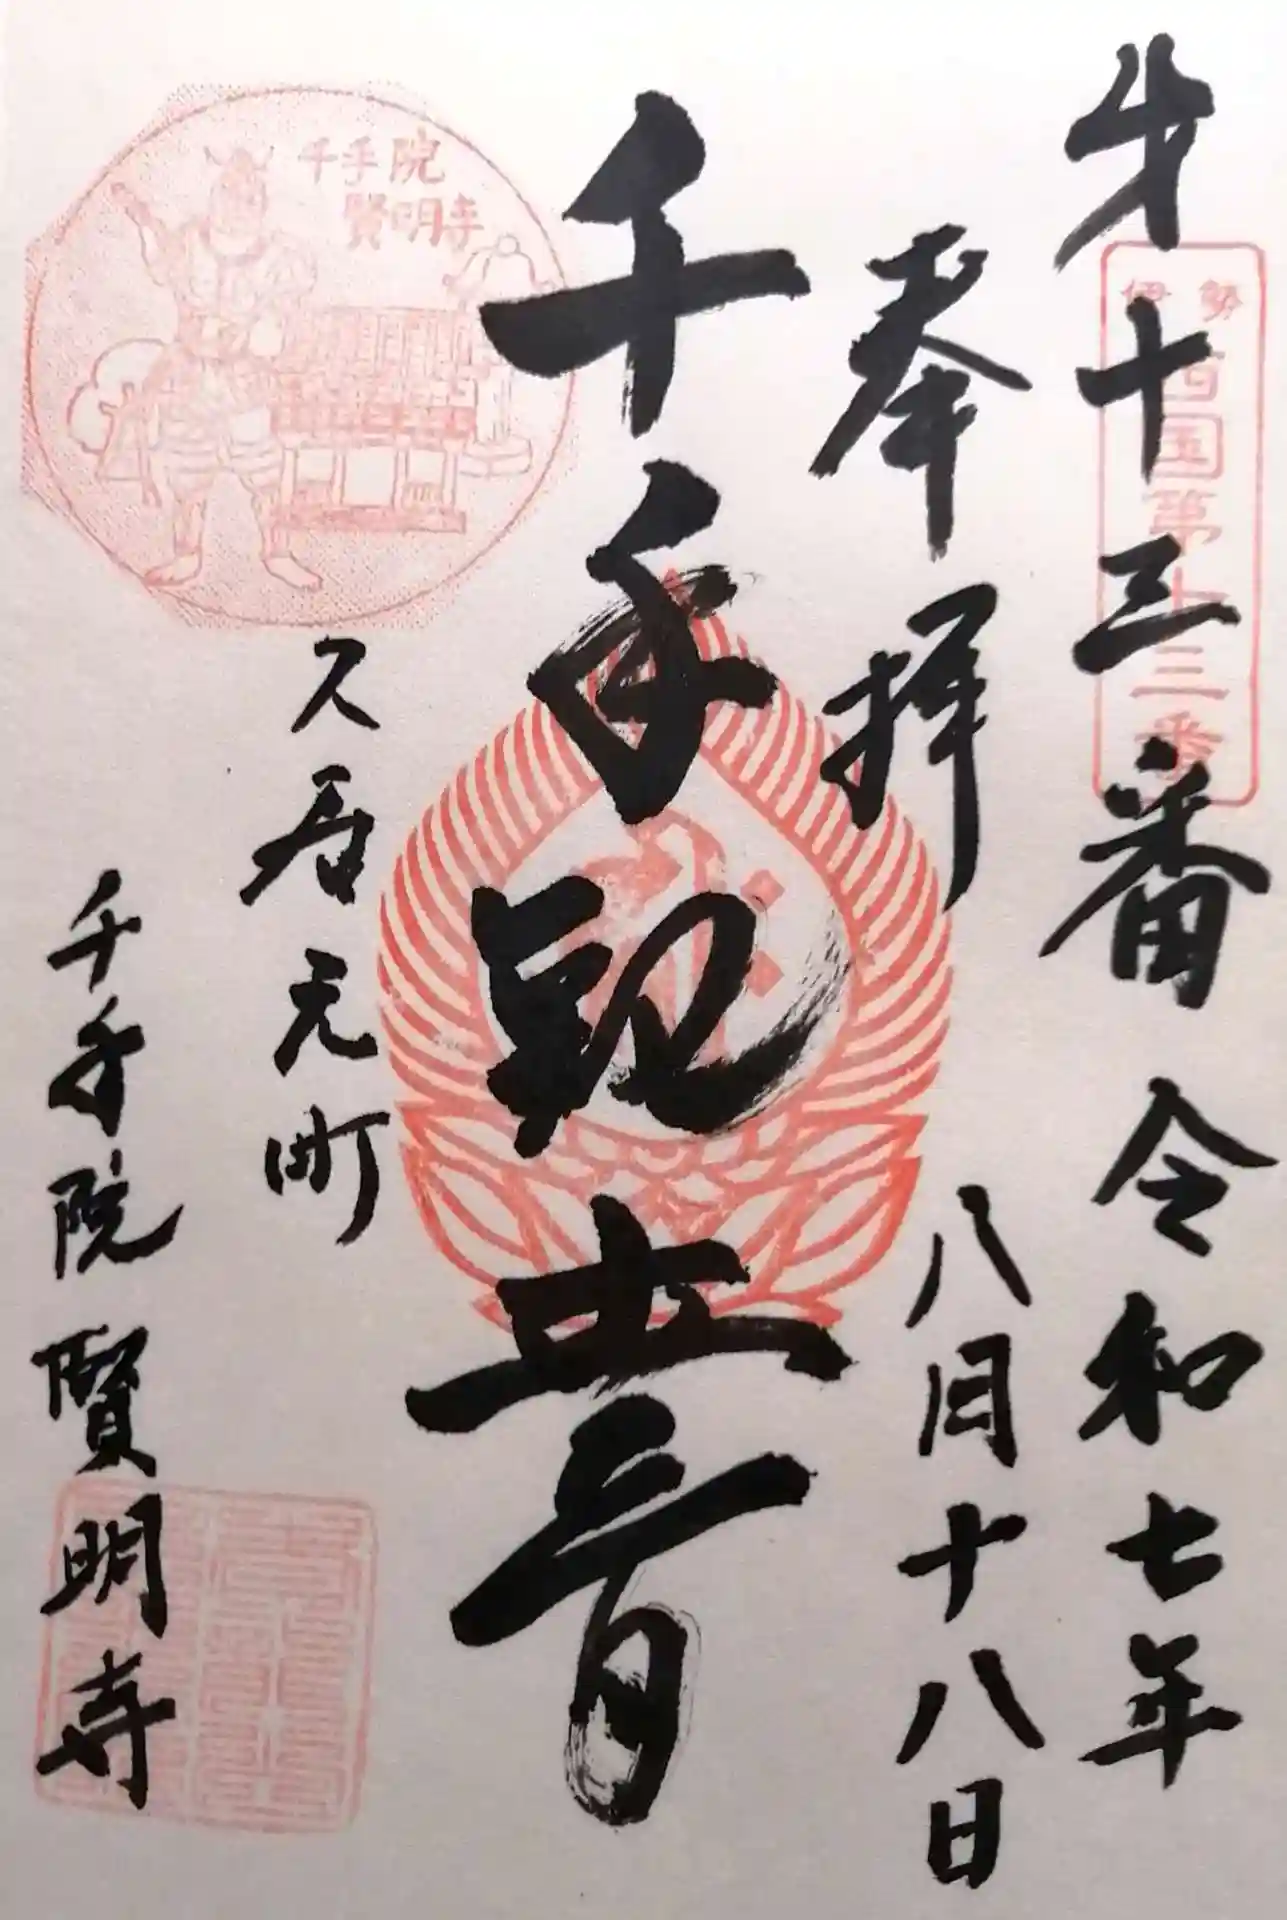 才十三番 令和七年
伊勢
西国第十三番
奉拝
八月十八日
千手観世音
千手院
賢明寺
久居元町
千手院賢明寺